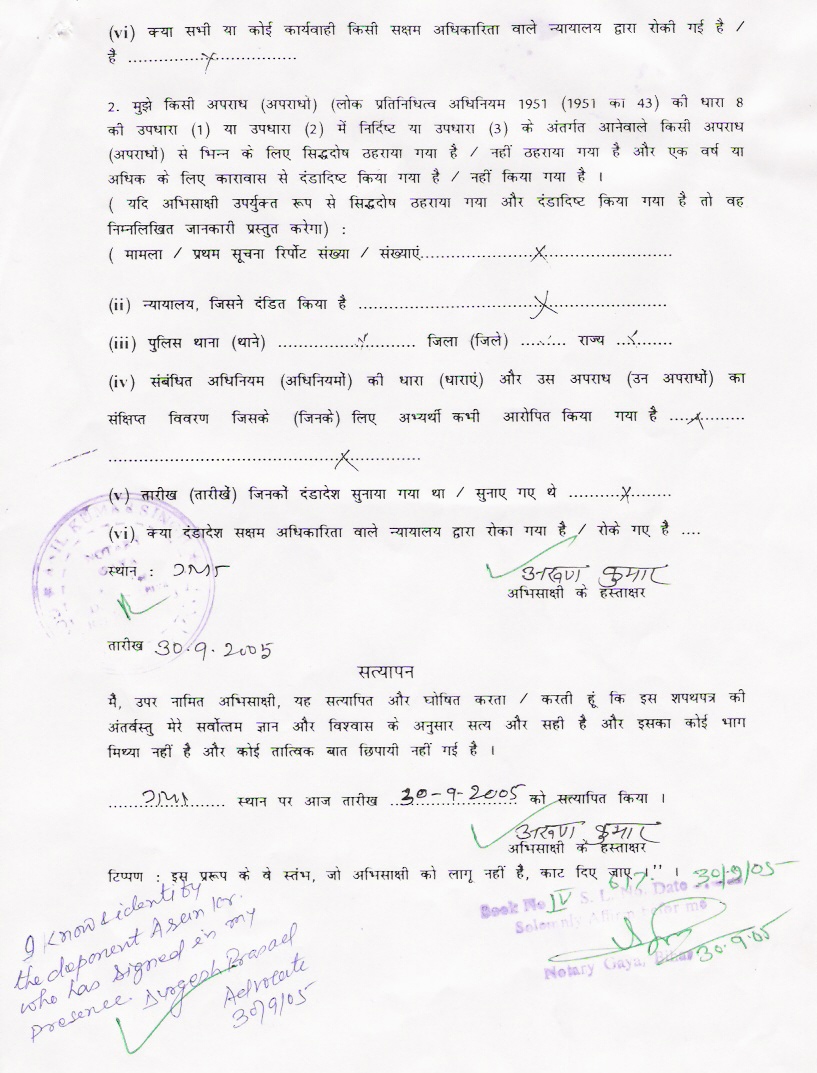 (vi) क्या सभी या कोई कार्यवाही किसी सक्षम अधिकारिता वाले न्यायालय द्वारा रोकी गई है /
है ............x..................
2. मुझे किसी अपराध (अपराधो) (लोक प्रतिनिधित्व अधिनियम 1951 (1951 का 43) की धारा 8
की उपधारा (1) या उपधारा (2) में निर्दिष्ट या उपधारा (3) के अंतर्गत आनेवाले किसी अपराध
(अपराधों) से भिन्न के लिए सिद्धदोष ठहराया गया है / नहीं ठहराया गया है और एक वर्ष या
अधिक के लिए कारावास से दंडादिष्ट किया गया है / नहीं किया गया है ।
( यदि अभिसाक्षी उपर्युक्त रूप से सिद्धदोष ठहराया गया और दंडादिष्ट किया गया है तो वह
निम्नलिखित जानकारी प्रस्तुत करेगा) :
( मामला / प्रथम सूचना रिर्पोट संख्या / संख्याएं....................x......................
(ii) न्यायालय, जिसने दंडित किया है ..............................x....................
(iii) पुलिस थाना (थाने) .............x......... जिला (जिले) ........ राज्य ..x.......
(iv) संबंधित अधिनियम (अधिनियमों) की धारा (धाराएं) और उस अपराध (उन अपराधों) का
संक्षिप्त विवरण जिसके (जिनके) लिए अभ्यर्थी कभी आरोपित किया गया है ....x.........
..........................................x.............
(v) तारीख (तारीखें) जिनकों दंडादेश सुनाया गया था / सुनाए गए थे ..........x.......
(vi) क्या दंडादेश सक्षम अधिकारिता वाले न्यायालय द्वारा रोका गया है / रोके गए है ....
स्थान : गया
अरुण कुमार
अभिसाक्षी के हस्ताक्षर
तारीख 30.9.2005
सत्यापन
मैं, उपर नामित अभिसाक्षी, यह सत्यापित और घोषित करता / करती हूं कि इस शपथपत्र की
अंतर्वस्तु मेरे सर्वोत्तम ज्ञान और विश्वास के अनुसार सत्य और सही है और इसका कोई भाग
मिथ्या नहीं है और कोई तात्विक बात छिपायी नहीं गई है ।
गया स्थान पर आज तारीख 30-9-2005 को सत्यापित किया ।
अरुण कुमार
अभिसाक्षी के हस्ताक्षर
टिप्पण : इस प्ररूप के वे स्तंभ, जो अभिसाक्षी को लागू नहीं है, काट दिए जाए ।" ।
Book No IV S. L. No. 617 Date 30/9/05
Solemnly Affirm before me
30.9.05
Notary Gaya, Bihar
I know & identify
the deponent Arun Kr.
who has signed in my
presence. Durgesh Prasad
Advocate
30/9/05